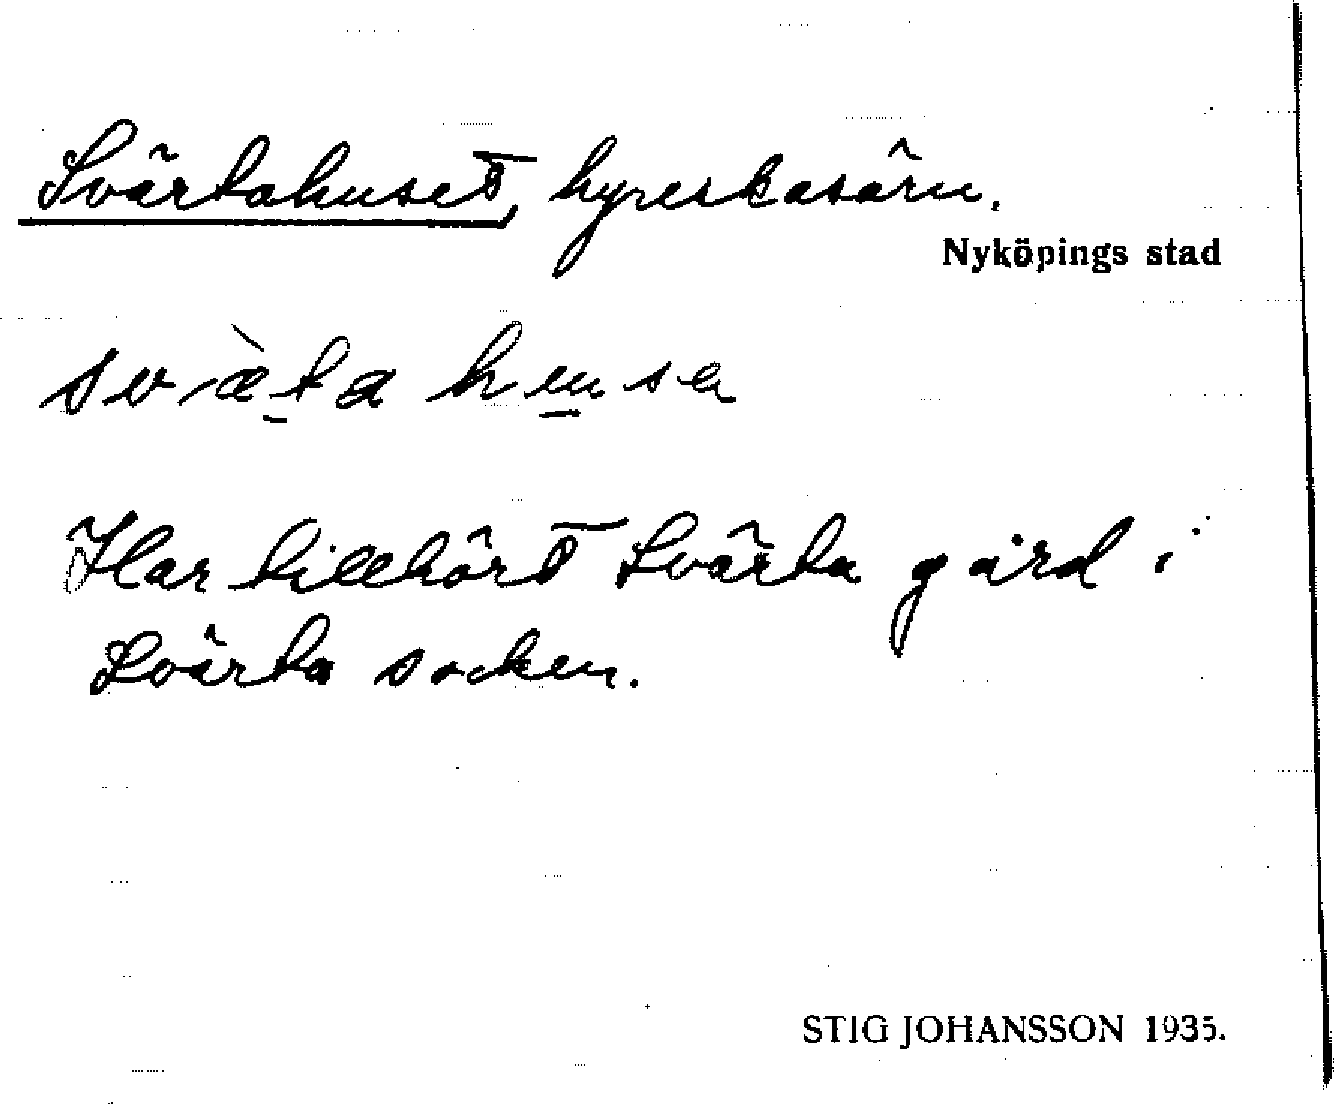 Svärtahuset, hyreskasärn.
Nyköpings stad
svæ̀ta husa
Har tillhört Svärta gård i
Svärta socken.
STIG JOHANSSON 1935.